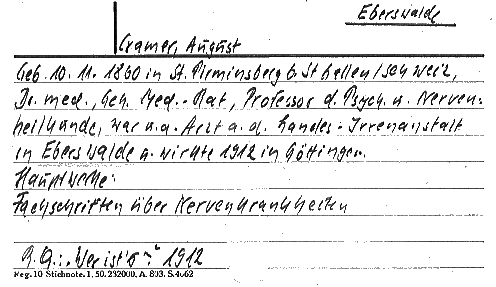 Eberswalde
Cramer, August
Geb. 10. 11. 1860 in St. Pirminsberg b. St. Gallen/Schweiz,
Dr. med., Geh. Med.-Rat, Professor d. Psych. u. Nerven-
heilkunde, war u.a. Arzt a. d. Landes-Irrenanstalt
in Eberswalde u. wirkte 1912 in Göttingen.
Hauptwerke:
Fachschriften über Nervenkrankheiten
"Wer ist's" 1912
Reg. 10 Stichnote. 1. 50. 232000. A. 803. S. 4062